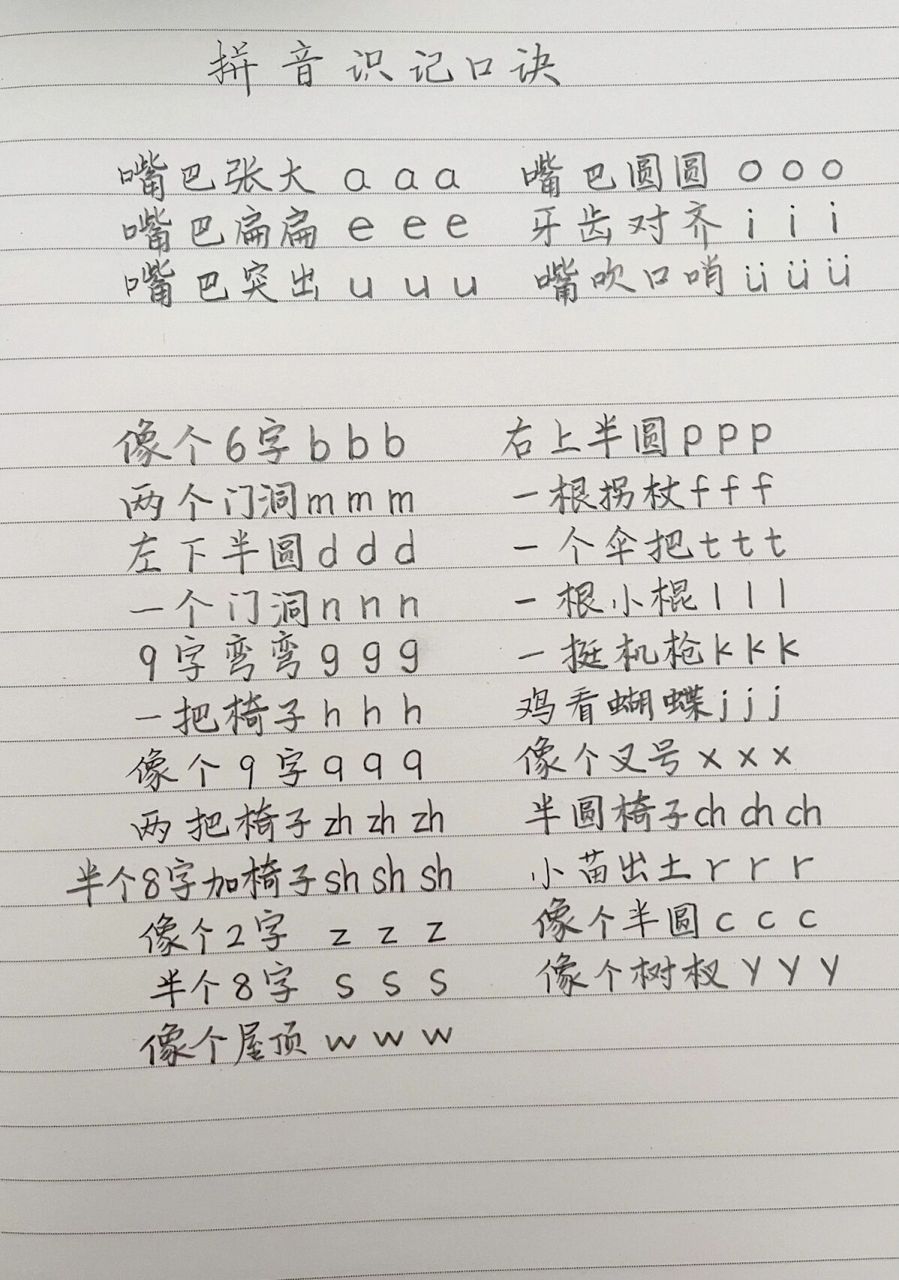 拼音识记口诀
嘴巴张大 a a a 嘴巴圆圆 o o o
嘴巴扁扁 e e e 牙齿对齐 i i i
嘴巴突出 u u u 嘴吹口哨 ü ü ü
像个6字 b b b 右上半圆 p p p
两个门洞 m m m 一根拐杖 f f f
左下半圆 d d d 一个伞把 t t t
一个门洞 n n n 一根小棍 l l l
9字弯弯 g g g 一挺机枪 k k k
一把椅子 h h h 鸡看蝴蝶 j j j
像个9字 q q q 像个叉号 x x x
两把椅子 zh zh zh 半圆椅子 ch ch ch
半个8字加椅子 sh sh sh 小苗出土 r r r
像个2字 z z z 像个半圆 c c c
半个8字 s s s 像个树杈 y y y
像个屋顶 w w w